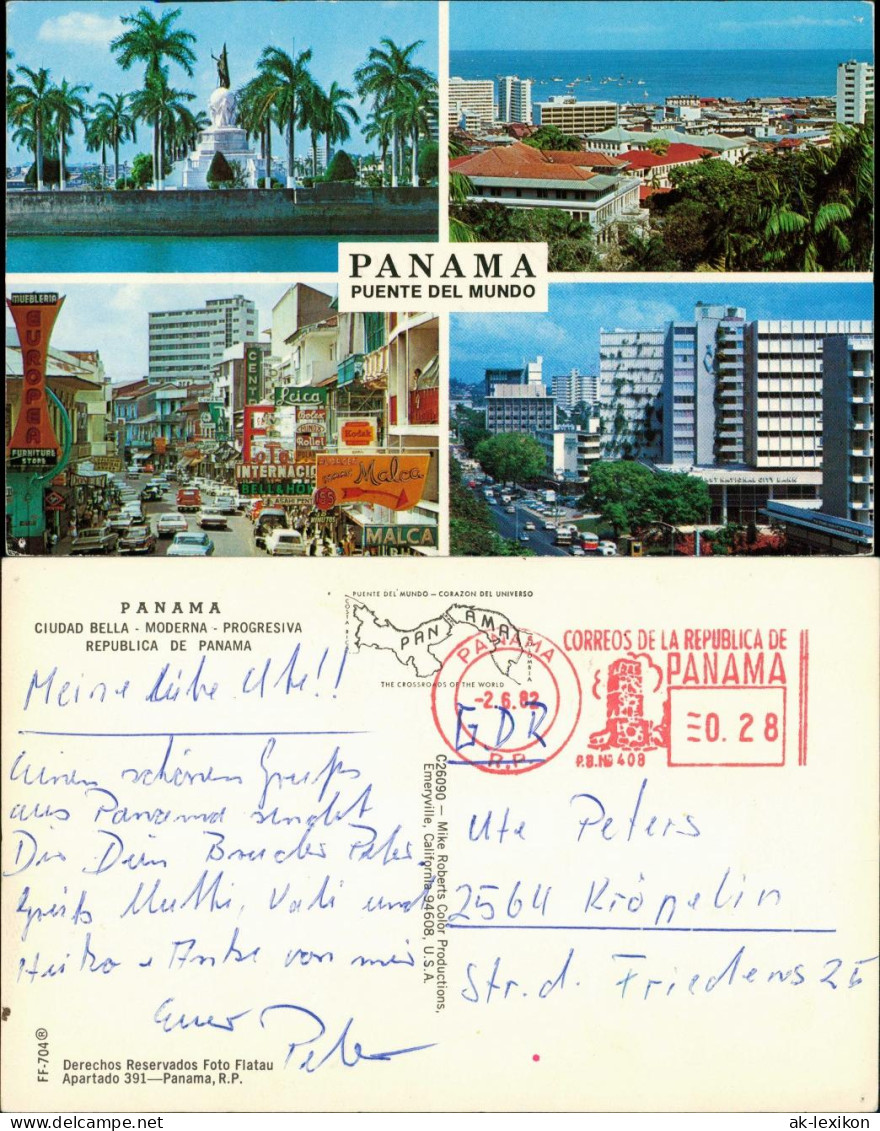 PANAMA
PUENTE DEL MUNDO
MUEBLERIA
EUROPEA
FURNITURE
STORE
CENT
Leica
Rollei
Kodak
INTERNACIO
BELLA HO
Malca
155
MALCA
FIRST NATIONAL CITY BANK
PANAMA
CIUDAD BELLA - MODERNA - PROGRESIVA
REPUBLICA DE PANAMA
PUENTE DEL MUNDO — CORAZON DEL UNIVERSO
COSTA RICA
PAN AMA
COLOMBIA
THE CROSSROADS OF THE WORLD
PANAMA
-2.6.82
R.P.
CORREOS DE LA REPUBLICA DE
PANAMA
0.28
P.B.Nº 408
G.DR
Meine liebe Ute!!
Einen schönen Gruß
aus Panama sendet
Dir Dein Bruder Peter.
Grüß Mutti, Vati und
Heiko + Antke von mir
Euer Peter
C26090 — Mike Roberts Color Productions,
Emeryville, California 94608, U.S.A.
Ute Peters
2564 Kröpelin
Str. d. Friedens 25
FF-704®
Derechos Reservados Foto Flatau
Apartado 391—Panama, R.P.
ak-lexikon